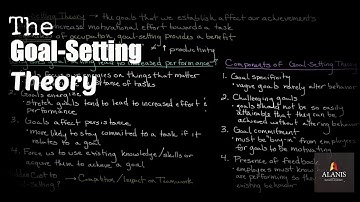 The
Goal-Setting
Theory
Setting Theory → the goals that we establish affect our achievements
increase motivational effort towards a task
of occupation, goal-setting provides a benefit
↑ productivity
goal setting lead to increased performance?
on things that matter
of tasks
2. Goals energize
• stretch goals tend to lead to increased effort &
performance
3. Goals affect persistence
• more likely to stay committed to a task if it
relates to a goal
4. Force us to use existing knowledge/skills or
acquire them to achieve a goal
Competition/Impact on Teamwork
Components of Goal-Setting Theory
1. Goal specificity
• vague goals rarely alter behavior
2. Challenging goals
• goals should not be so easily
attainable that they can be
achieved without altering behavior
3. Goal commitment
• must be "buy-in" from employees
for goals to be motivating
4. Presence of feedback
• employees must know
are performing to the
existing behavior
ALANIS